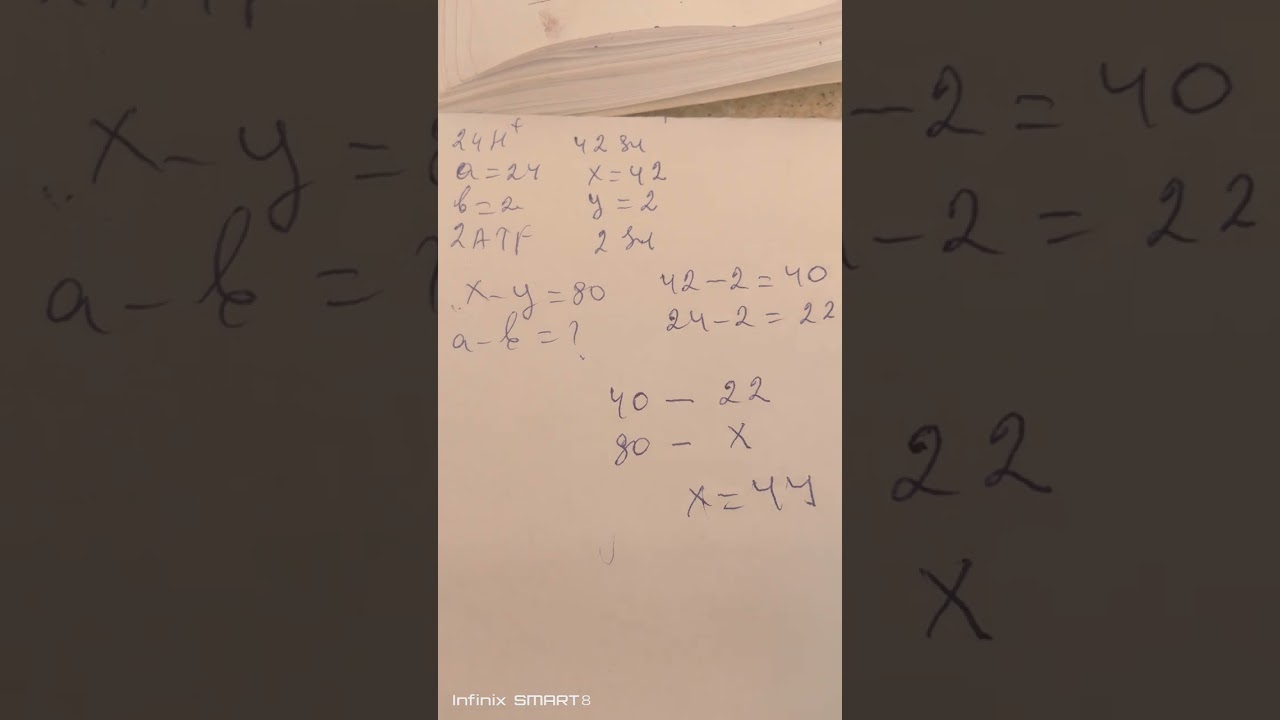 24H⁺ 42 зл
a=24 x=42
b=2 y=2
2ATF 2 зл
x-y=80 42-2=40
a-b=? 24-2=22
40 - 22
80 - x
x=44
Infinix SMART8